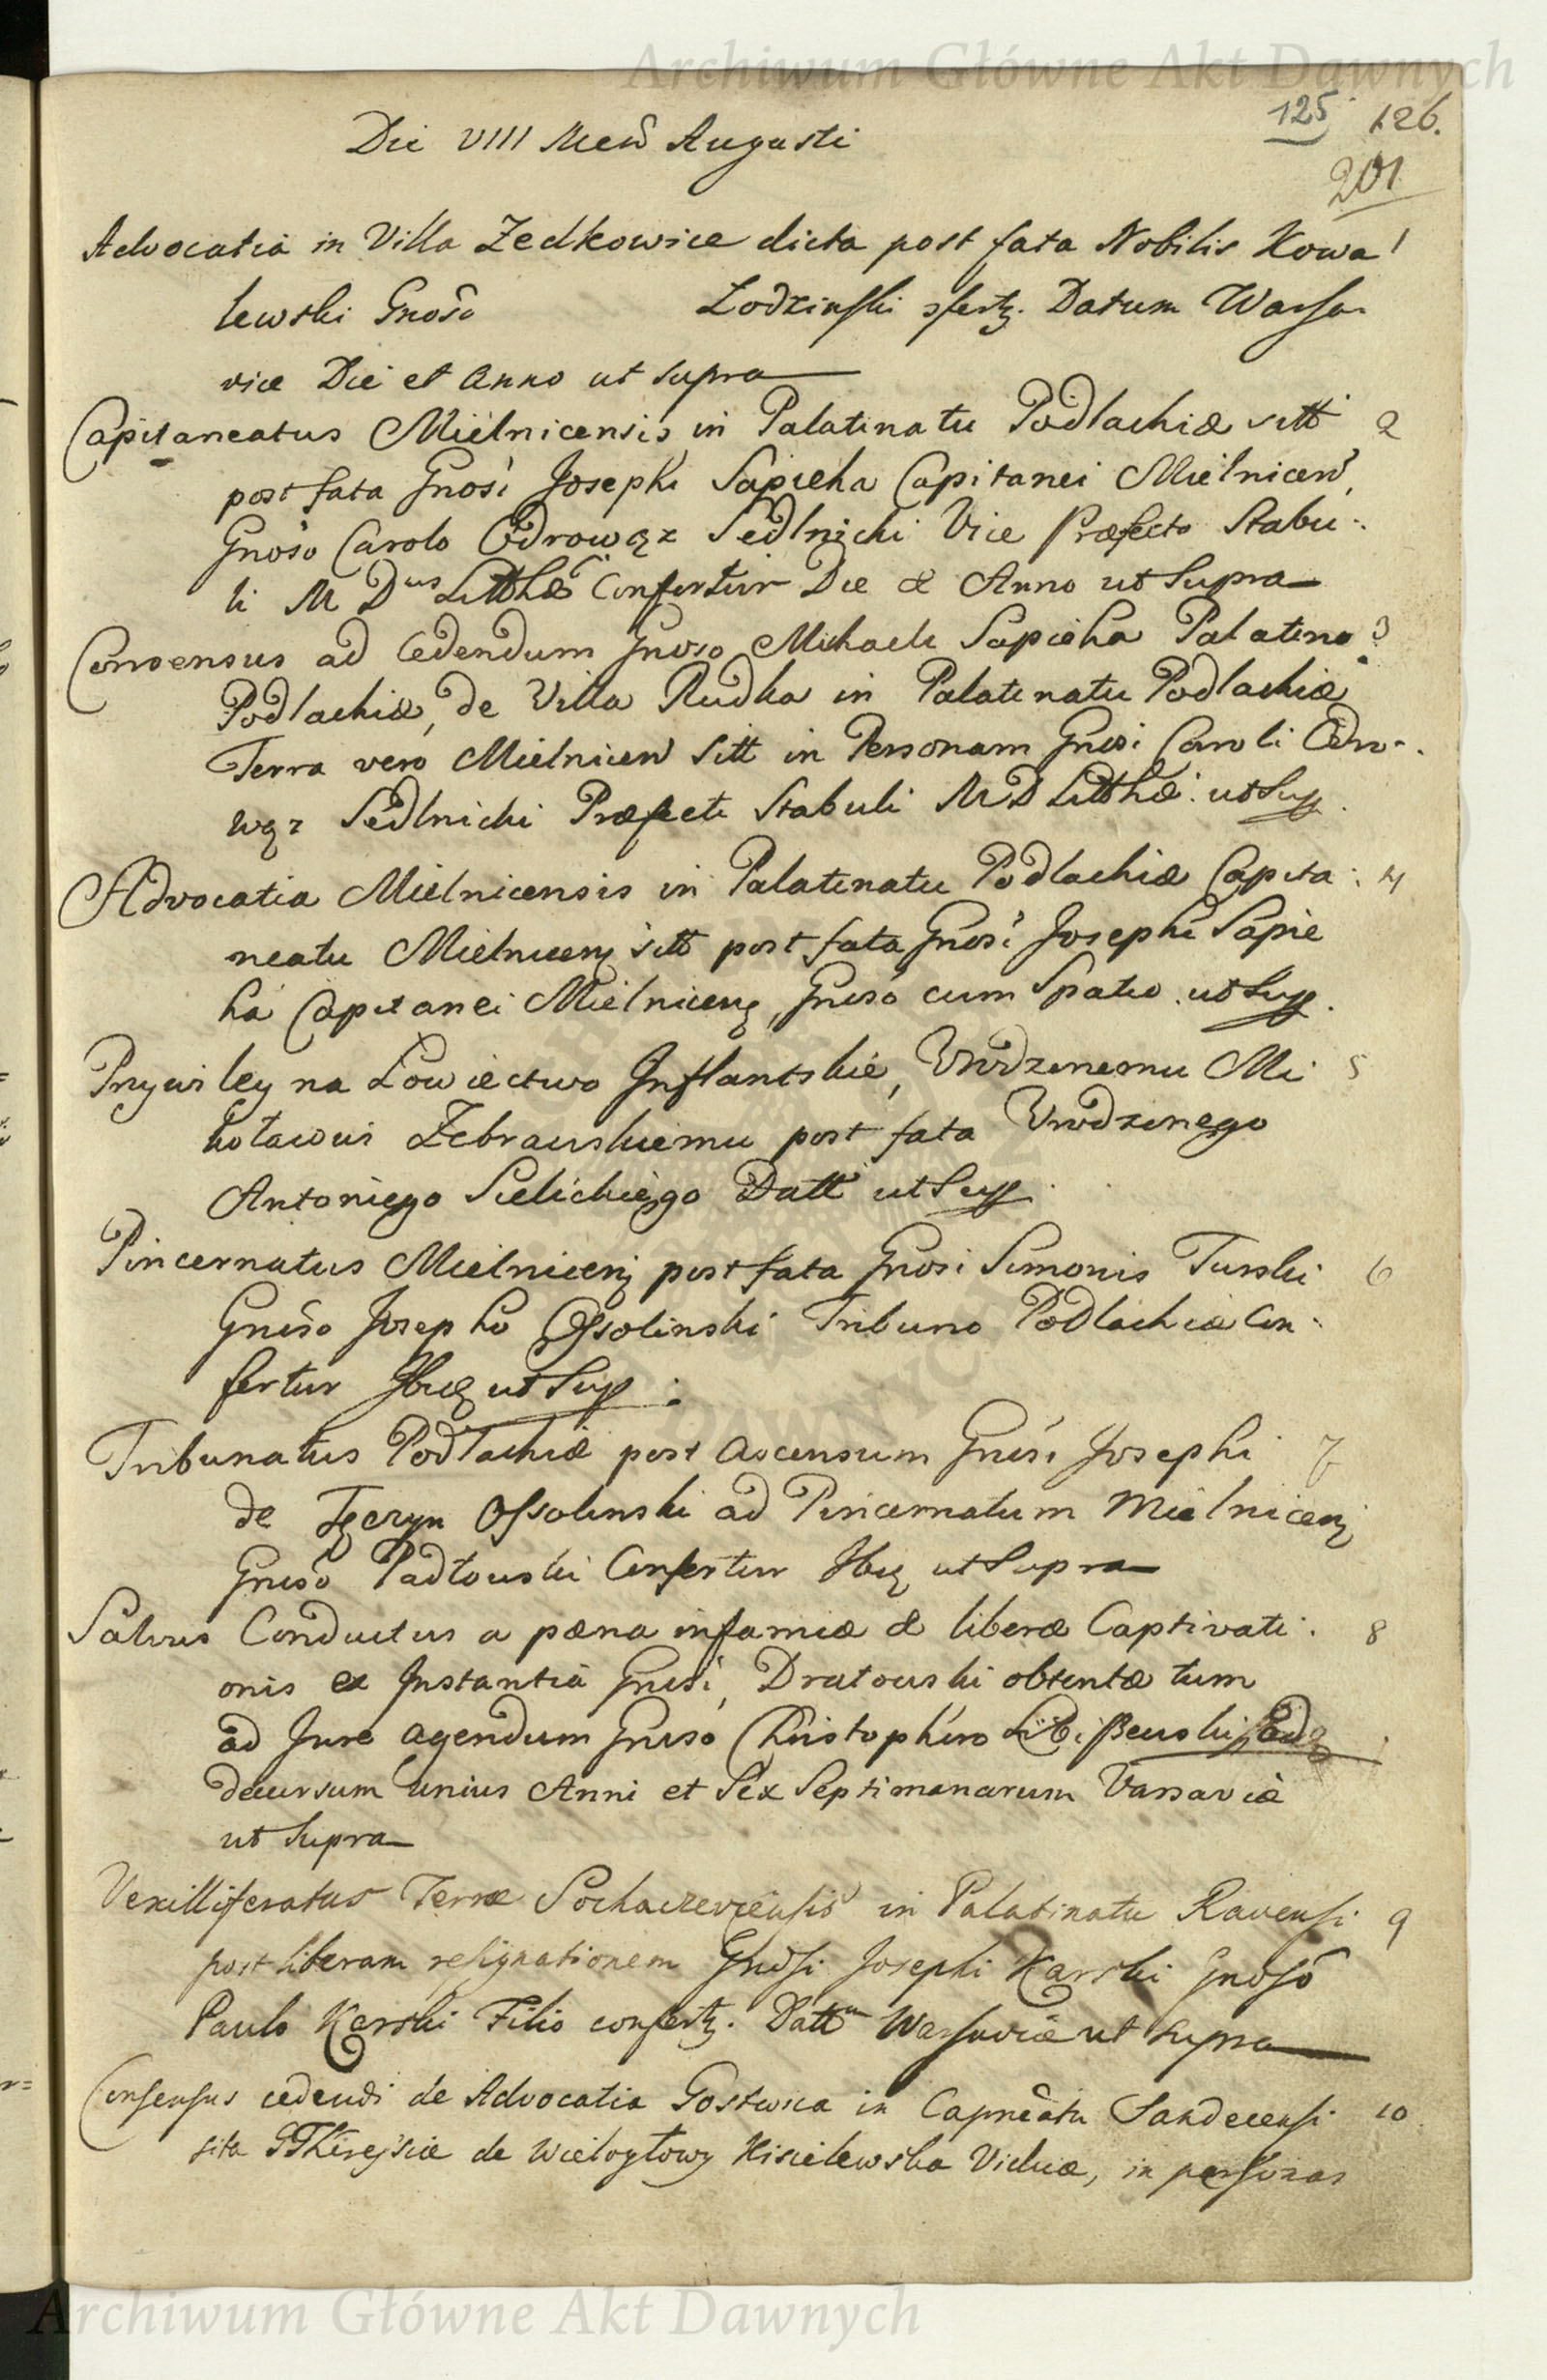 Archiwum Główne Akt Dawnych
125 126.
201
Die VIII Men̄ Augusti
Advocatia in Villa Zedkowice dicta post fata Nobilis Kowa 1
lewski Gnōso Lodzinski cfertz. Datum Warsa-
viæ Die et Anno ut supra
Capitaneatus Mielnicensis in Palatinatu Podlachiæ sitt 2
post fata Gnosi Josephi Sapieha Capitanei Mielnicen̄,
Gnoso Carolo Odrowąz Sedlnicki Vice Præfecto Stabu-
li M Dus Litthæ Confertur Die & Anno ut Supra
Consensus ad Cedendum Gnoso Michaeli Sapieha Palatino 3
Podlachiæ, de Villa Rudka in Palatinatu Podlachiæ
Terra vero Mielnicen̄ Sitt in Personam Gnosi Caroli Odro-
wąz Sedlnicki Præfecti Stabuli M D Litthæ ut Sup
Advocatia Mielnicensis in Palatinatu Podlachiæ Capita: 4
neatu Mielnicenz sitt post fata Gnosi Josephi Sapie
ha Capitanei Mielnicenz, Gnoso cum Spatio. ut Sup.
Przywiley na Łowiectwo Inflantskie, Vrodzonemu Mi 5
kołaiowi Zebrawskiemu post fata Vrodzonego
Antoniego Sielickiego Datt ut Sup
Pincernatus Mielnicenz post fata Gnosi Simonis Turski 6
Gnoso Josepho Ossolinski Tribuno Podlachiæ Con-
fertur Ibiq ut Sup:
Tribunatus Podlachiæ post Ascensum Gnosi Josephi 7
de Tęczyn Ossolinski ad Pincernatum Mielnicenz
Gnoso Padlowski Confertur Ibiq ut Supra
Salvus Conductus a pæna infamiæ & liberæ Captivati: 8
onis ex Instantia Gnosi, Dratowski obtentæ tum
ad Jure agendum Gnoso Christophoro
decursum unius Anni et Sex Septimanarum Varsaviæ
ut Supra
Vexilliferatus Terræ Sochaczeviensis in Palatinatu Ravensi 9
post liberam resignationem Gnosi Josephi Karski Gnoso
Paulo Karski Filio confertz. Dattm Warsaviæ ut supra
Consensus cedendi de Advocatia Gostwica in Capneatu Sandecensi 10
sita GTheresiæ de Wielogłowy Kisielewska Viduæ, in personas
Archiwum Główne Akt Dawnych